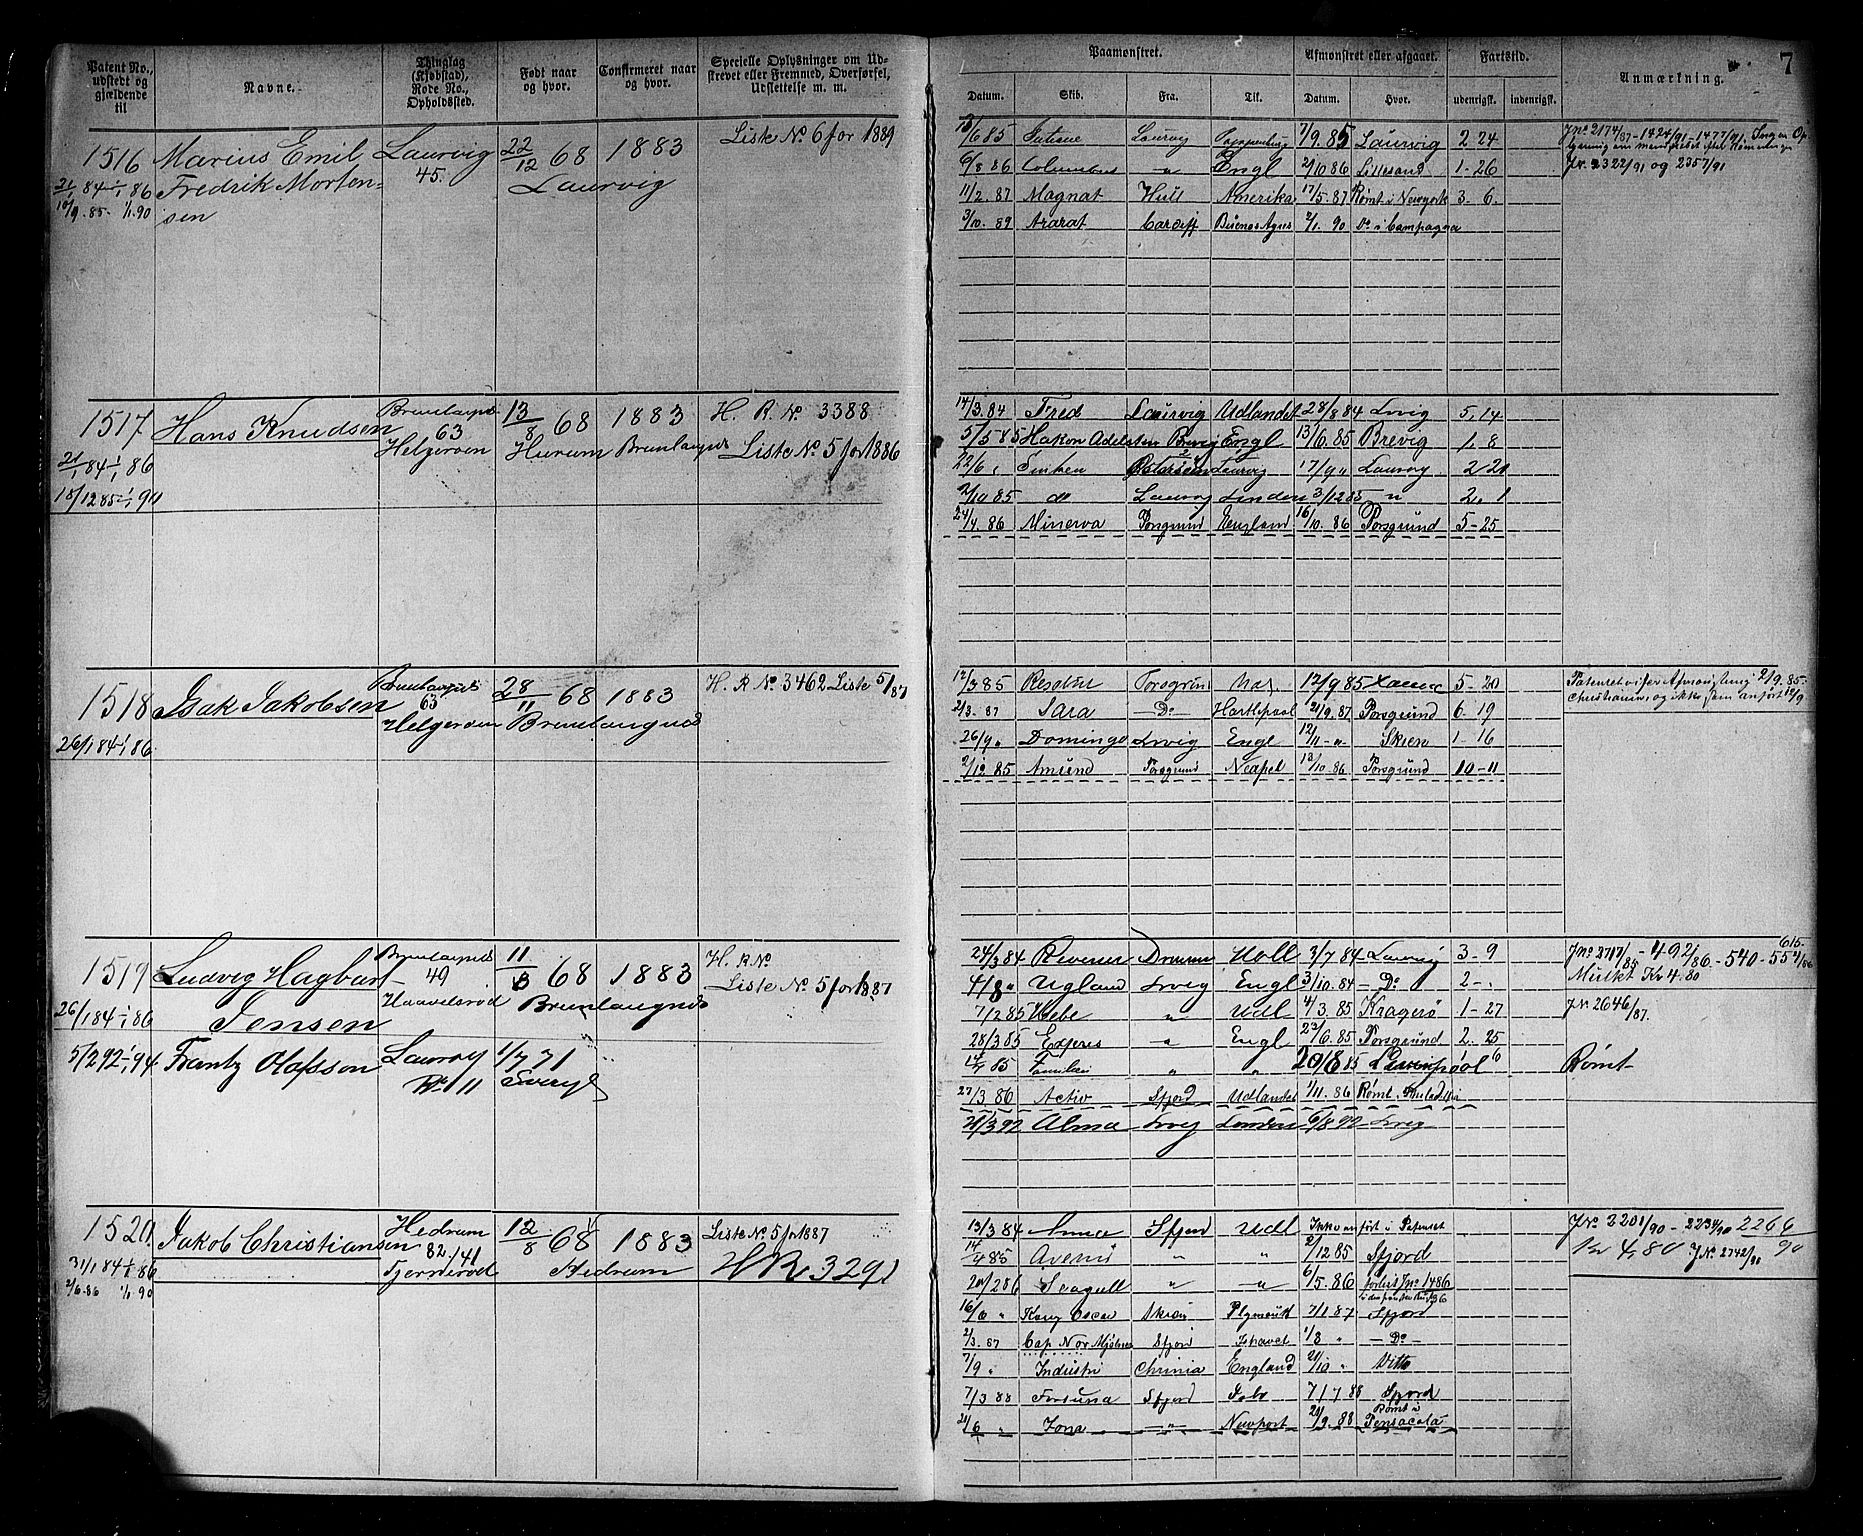 7
Patent No., udstedt og gjældende til
Navne.
Thinglag (Kjøbstad), Rode No., Opholdssted.
Født naar og hvor.
Confirmeret naar og hvor.
Specielle Oplysninger om Udskrevet eller Fremmed, Overførsel, Udslettelse m. m.
Paamønstret.
Afmønstret eller afgaaet.
Fartstid.
Anmærkning.
Datum. Skib. Fra. Til. Datum. Hvor. udenrigsk. indenrigsk.
1516 Marius Emil Laurvig 22/12 68 1883 Liste No 6 for 1889
Fredrik Morten- 45. Laurvig
sen
10/9.85- 1/1.90
Laurvig 7/9.85 Laurvig 2 24
6/8 86 Columbus " Engl 2/10 86 Lillesand 1-26
11/2.87 Magnat Hull Amerika 17/5.87 Rømt i Newyork 3-6.
3/10.89 Ararat Cardiff Buenos Ayres 2/1.90 Do i Campagna
Jr. 2322/91 og 2357/91
1517 Hans Knudsen 63 Helgeroen 13/8 68 Hurum 1883 Brunlangnæs H. R. No 3388
Liste No. 5 for 1886
21/1 84 1/1 86
18/12 85 1/1 90
14/3.84 Fred Laurvig Udlandet 28/8 84 Lvig 5.14
5/5 85 Hakon Adelsten Brevig Engl 13/6.85 Brevig 1.8
22/6 " Laurvig 17/9 " Laurvig 2/21
2/10 85 do Laurvig London 3/12 85 " 2.1
24/4.86 Minerva Porsgrund England 16/10.86 Porsgrund 5-25
1518 Isak Jakobsen Brunlangnæs 63 Helgeroen 28/11 68 Brunlangnæs 1883 H. R No 3462 Liste 5/87
26/1 84 1/1 86
12/3 85 Porsgrund 12/9 85 5-20
2/3.87 Sara Do Hartlepool 21/9.87 Porsgrund 6.19
26/9 " Domingo Lvig Engl 12/11-" Skien 1-16
2/12 85 Amund Porsgrund Neapel 13/10.86 Porsgrund 10-11
1519 Ludvig Hagbart Jensen Brunlangnæs 49 11/3 68 Brunlangnæs 1883 H. R No
Liste No. 5 for 1887
26/1 84 1/1 86
5/2 92 1/1 94 Frantz Olafsson Laurvig No 11 1/7 71 Sverige
24/3 84 Hull 3/7 84 Laurvig 3-9
4/8 " Ugland Lvig Engl 3/10.84 - Do 2-.
7/2 85 Hebe " Udl 4/3.85 Kragerø 1-27
28/3 85 Expres " Engl 23/6.85 Porsgrund 2.25
" " 20/8 85 Liverpool 6
27/3.86 Activ Sfjord Udlandet 1/11.86 Rømt
Alma Lvig London 6/8 92 Lvig
Mulkt Kr 4.80
Jr 2646/87.
Rømt
1520 Jakob Christiansen Hedrum 82./41 12/8 68 Hedrum 1883 Liste No. 5 for 1887
HR 3291
31/1 84 1/1 86
2/6.86 1/1.90
13/3 84 Anna Sfjord Udl Ikke anført i Patentet
" " 2/12 85 Sfjord
20/2 86 Seagull " " 6/5.86
16/8 " Kong Oscar Skien Plymouth 7/1 87 Sfjord
2/3.87 Cap Nor Mjølner Sfjord Ishavet 1/8 " - Do -
7/9 " Industri Chrinia England 21/10 " Ditto
7/3 88 Fortuna Sfjord 7/7 88 Sfjord
21/6 " Iona -"- Newport 21/9.88 Rømt i Pensacola
Jr No 3201/90 - 2234/90 2266/90
Kr 4,80 J No. 2742/90